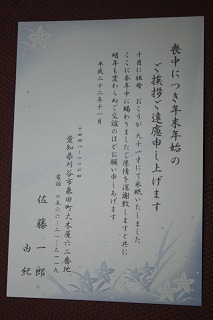 喪中につき年末年始の
ご挨拶ご遠慮申し上げます
十月に祖母 おこうが 九十一才にて永眠いたしました
ここに本年中に賜わりましたご厚情を深謝致しますと共に
明年も変わらぬご交誼のほどお願い申しあげます
平成二十二年十一月
愛知県刈谷市泉田町大木屋六二番地
電話
佐藤一郎
由紀